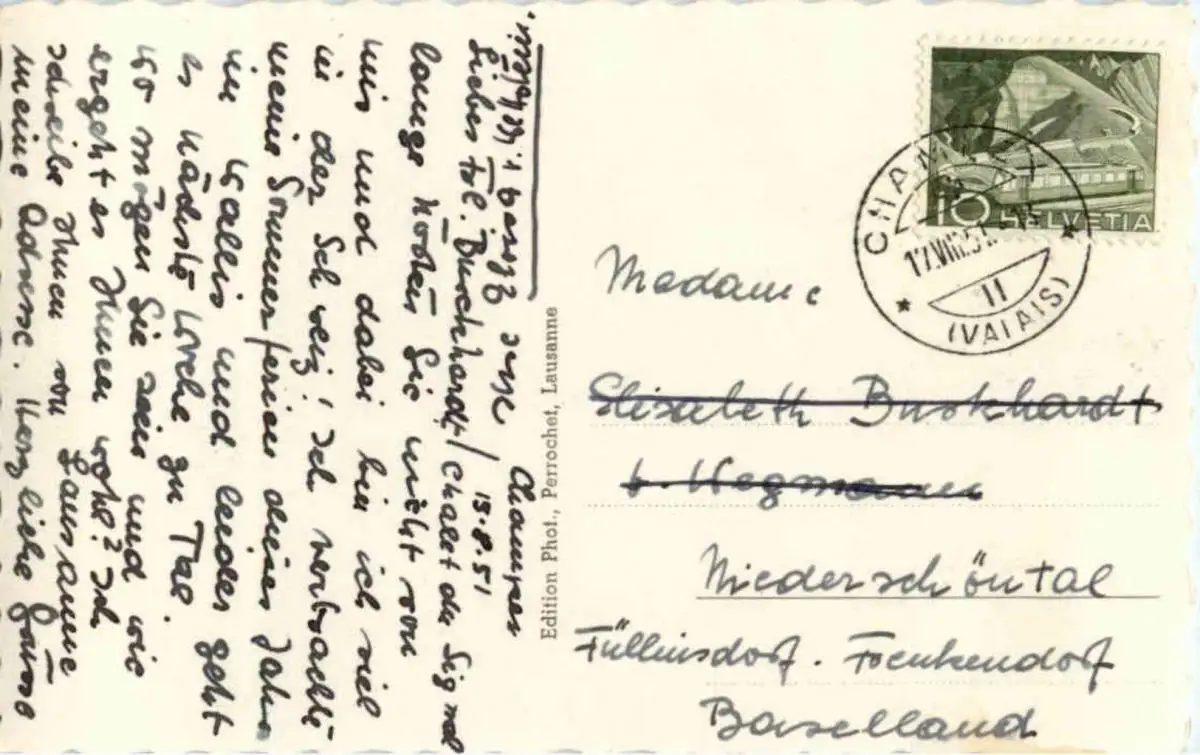 Champex
13.8.51
Liebes Frl. Burckhardt / chalet du Signal
lange hören Sie nicht von
mir und dabei bin ich viel
in der Schweiz! Ich verbrachte
meine Sommerferien dieses Jahr
im Wallis und leider geht
es nächste Woche zu Tal.
Wo mögen Sie sein und wie
ergeht es Ihnen wohl? Ich
schreibe Ihnen von Lausanne
meine Adresse. Herzliche Grüsse
Edition Phot., Perrochet, Lausanne
10 HELVETIA
CHAMPEX
17.VIII.51
11
(VALAIS)
Madame
Elisabeth Burkhardt
b. Wegmann
Niederschöntal
Füllinsdorf. Frenkendorf
Baselland